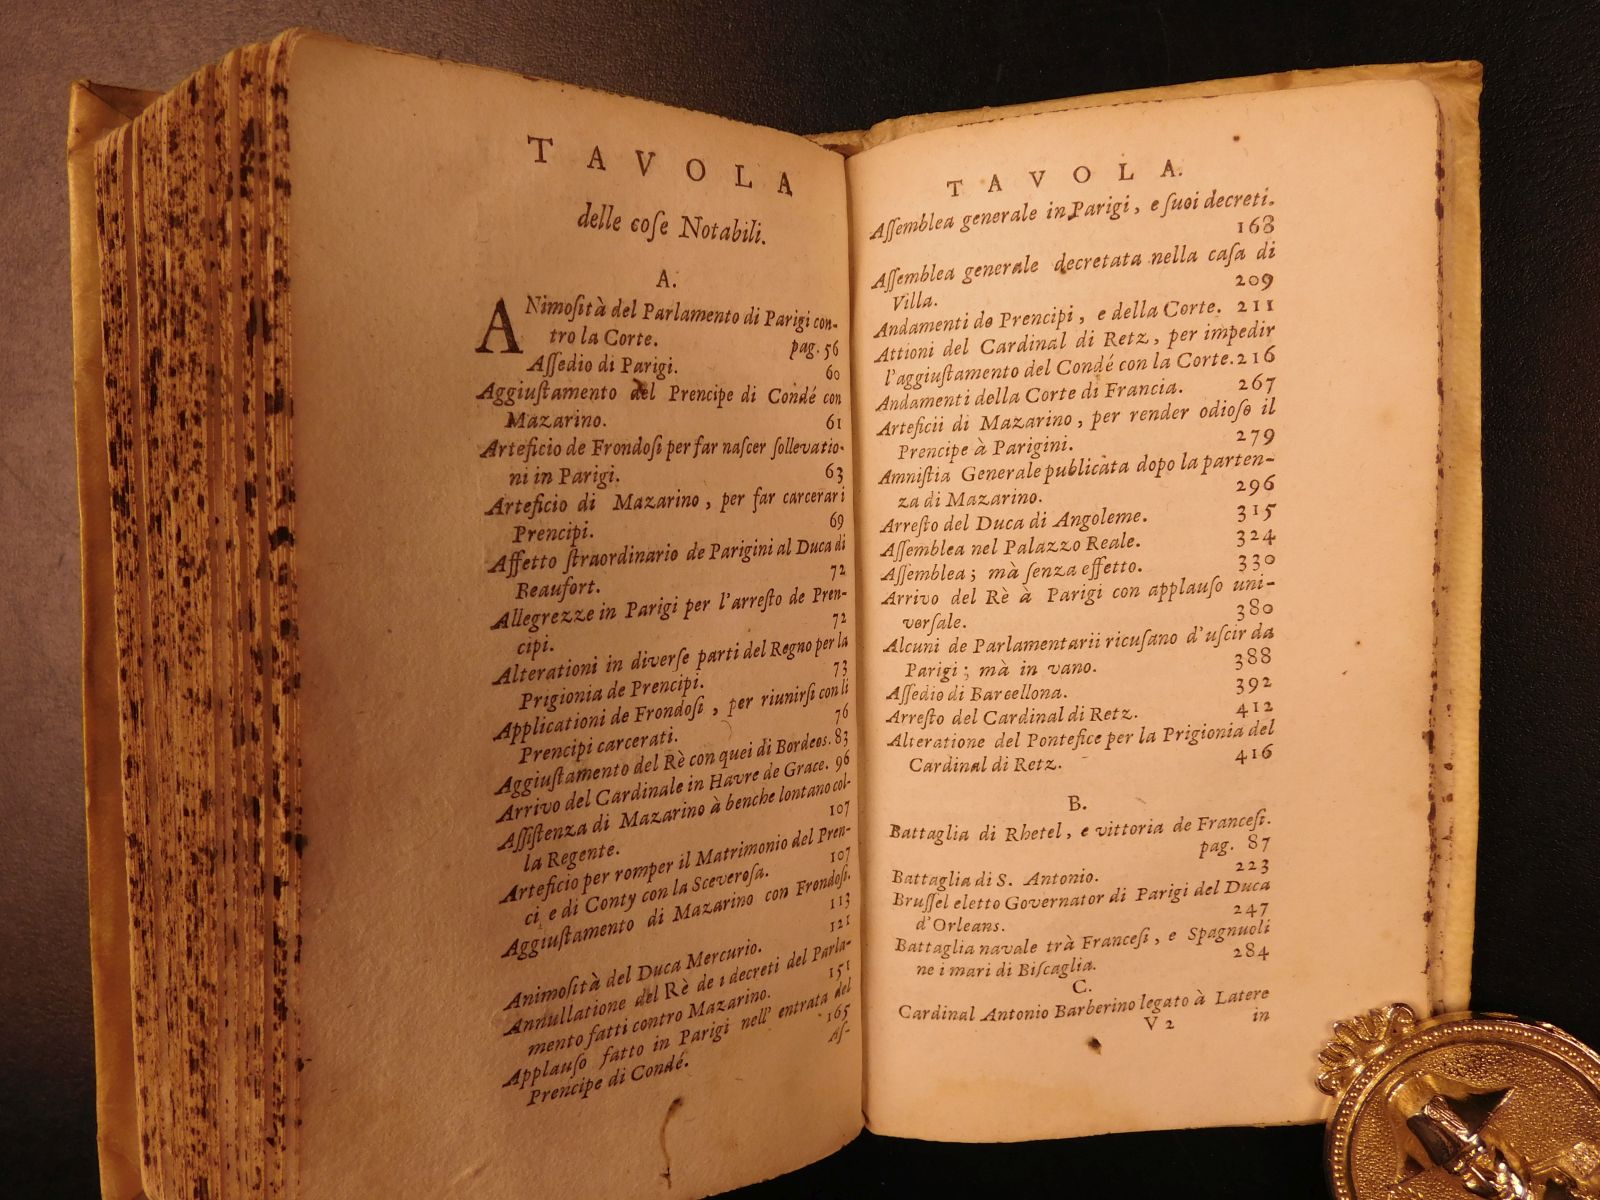 TAVOLA
delle coſe Notabili.
A.
ANimoſità del Parlamento di Parigi con-
tro la Corte. pag. 56
Aſſedio di Parigi. 60
Aggiuſtamento del Prencipe di Condé con
Mazarino. 61
Arteficio de Frondoſi per far naſcer ſollevatio-
ni in Parigi. 63
Arteficio di Mazarino, per far carcerar i
Prencipi. 69
Affetto ſtraordinario de Parigini al Duca di
Beaufort. 72
Allegrezze in Parigi per l'arreſto de Pren-
cipi. 72
Alterationi in diverſe parti del Regno per la
Prigionia de Prencipi. 73
Applicationi de Frondoſi, per riunirſi con li
Prencipi carcerati. 76
Aggiuſtamento del Rè con quei di Bordeos. 83
Arrivo del Cardinale in Havre de Grace. 96
Aſſiſtenza di Mazarino à benche lontano col-
la Regente. 107
Arteficio per romper il Matrimonio del Pren-
ci e di Conty con la Sceveroſa. 107
Aggiuſtamento di Mazarino con Frondoſi.
113
Animoſità del Duca Mercurio. 121
Annullatione del Rè de i decreti del Parla-
mento fatti contro Mazarino. 151
Applauſo fatto in Parigi nell' entrata del
Prencipe di Condé. 165
Aſ-
TAVOLA.
Aſſemblea generale in Parigi, e ſuoi decreti.
168
Aſſemblea generale decretata nella caſa di
Villa. 209
Andamenti de Prencipi, e della Corte. 211
Attioni del Cardinal di Retz, per impedir
l'aggiuſtamento del Condé con la Corte. 216
Andamenti della Corte di Francia. 267
Arteficii di Mazarino, per render odioſo il
Prencipe à Parigini. 279
Amniſtia Generale publicata dopo la parten-
za di Mazarino. 296
Arreſto del Duca di Angoleme. 315
Aſſemblea nel Palazzo Reale. 324
Aſſemblea; mà ſenza effetto. 330
Arrivo del Rè à Parigi con applauſo uni-
verſale. 380
Alcuni de Parlamentarii ricuſano d'uſcir da
Parigi; mà in vano. 388
Aſſedio di Barcellona. 392
Arreſto del Cardinal di Retz. 412
Alteratione del Pontefice per la Prigionia del
Cardinal di Retz. 416
B.
Battaglia di Rhetel, e vittoria de Franceſi.
pag. 87
Battaglia di S. Antonio. 223
Bruſſel eletto Governator di Parigi del Duca
d'Orleans. 247
Battaglia navale trà Franceſi, e Spagnuoli
ne i mari di Biſcaglia. 284
C.
Cardinal Antonio Barberino legato à Latere
V 2 in